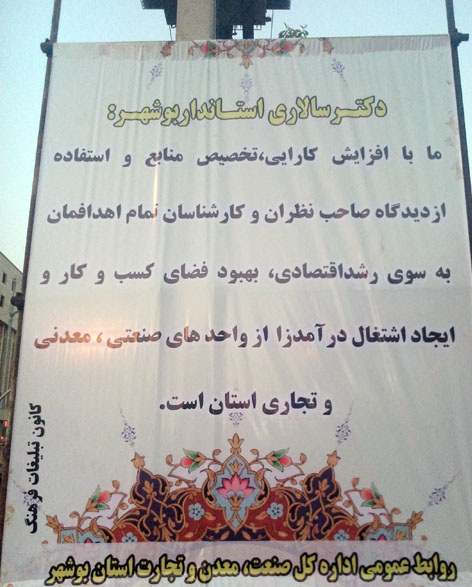 دکتر سالاری استاندار بوشهر:
ما با افزایش کارایی،تخصیص منابع و استفاده
ازدیدگاه صاحب نظران و کارشناسان تمام اهدافمان
به سوی رشداقتصادی، بهبود فضای کسب و کار و
ایجاد اشتغال درآمدزا از واحد های صنعتی ، معدنی
و تجاری استان است.
کانون تبلیغات فرهنگ
روابط عمومی اداره کل صنعت، معدن و تجارت استان بوشهر